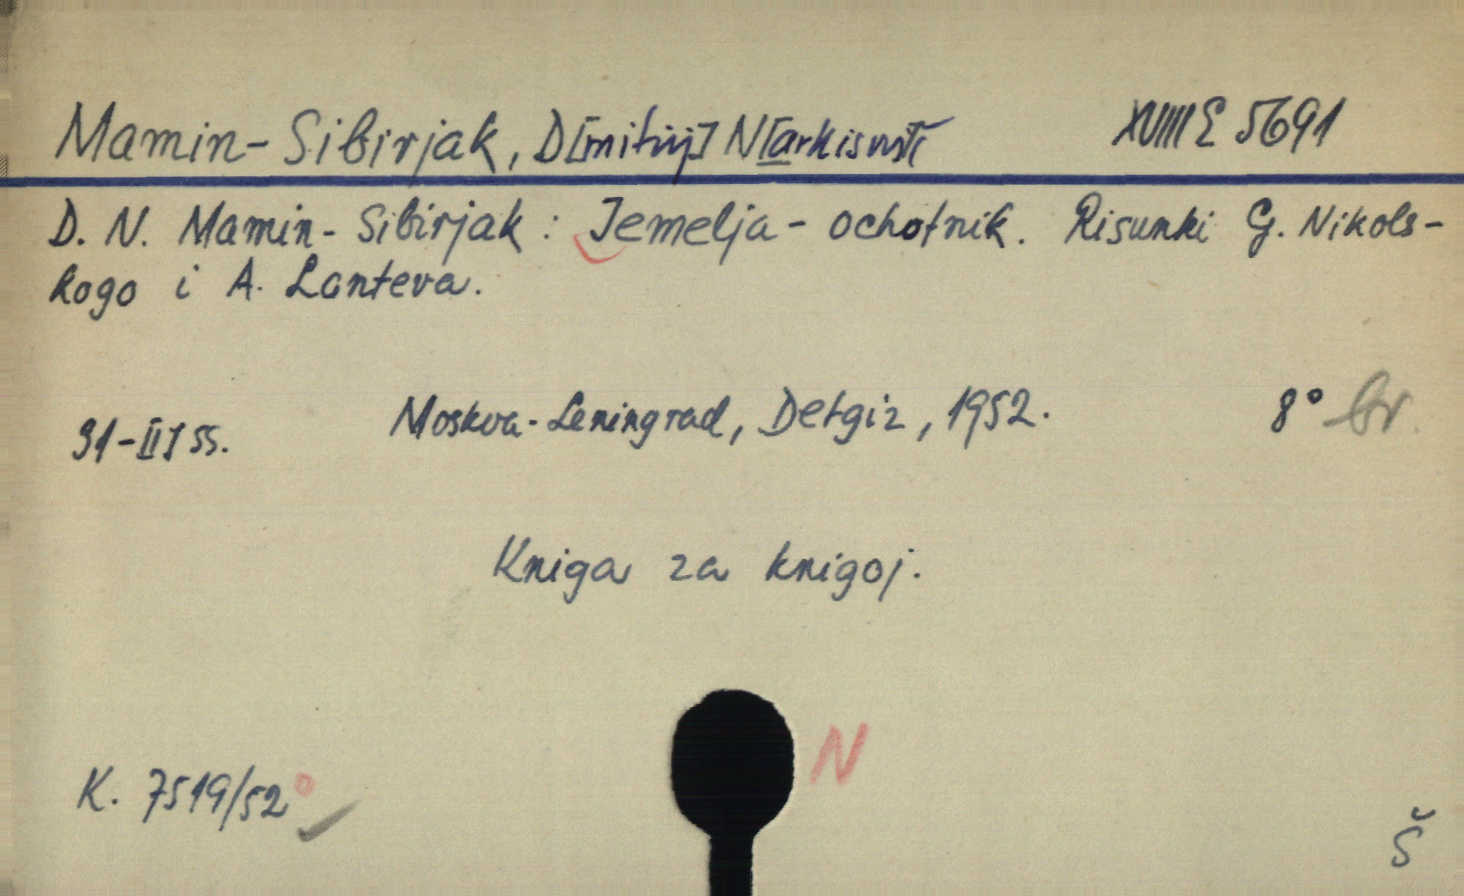 Mamin-Sibirjak, D[mitrij] N[arkisovič XVIII E 5691
D. N. Mamin-Sibirjak: Jemelja-ochotnik. Risunki G. Nikols-
kogo i A. Lapteva.
31-III 55. Moskva-Leningrad, Detgiz, 1952. 8° br.
Kniga za knigoj.
N
K. 7519/52
Š